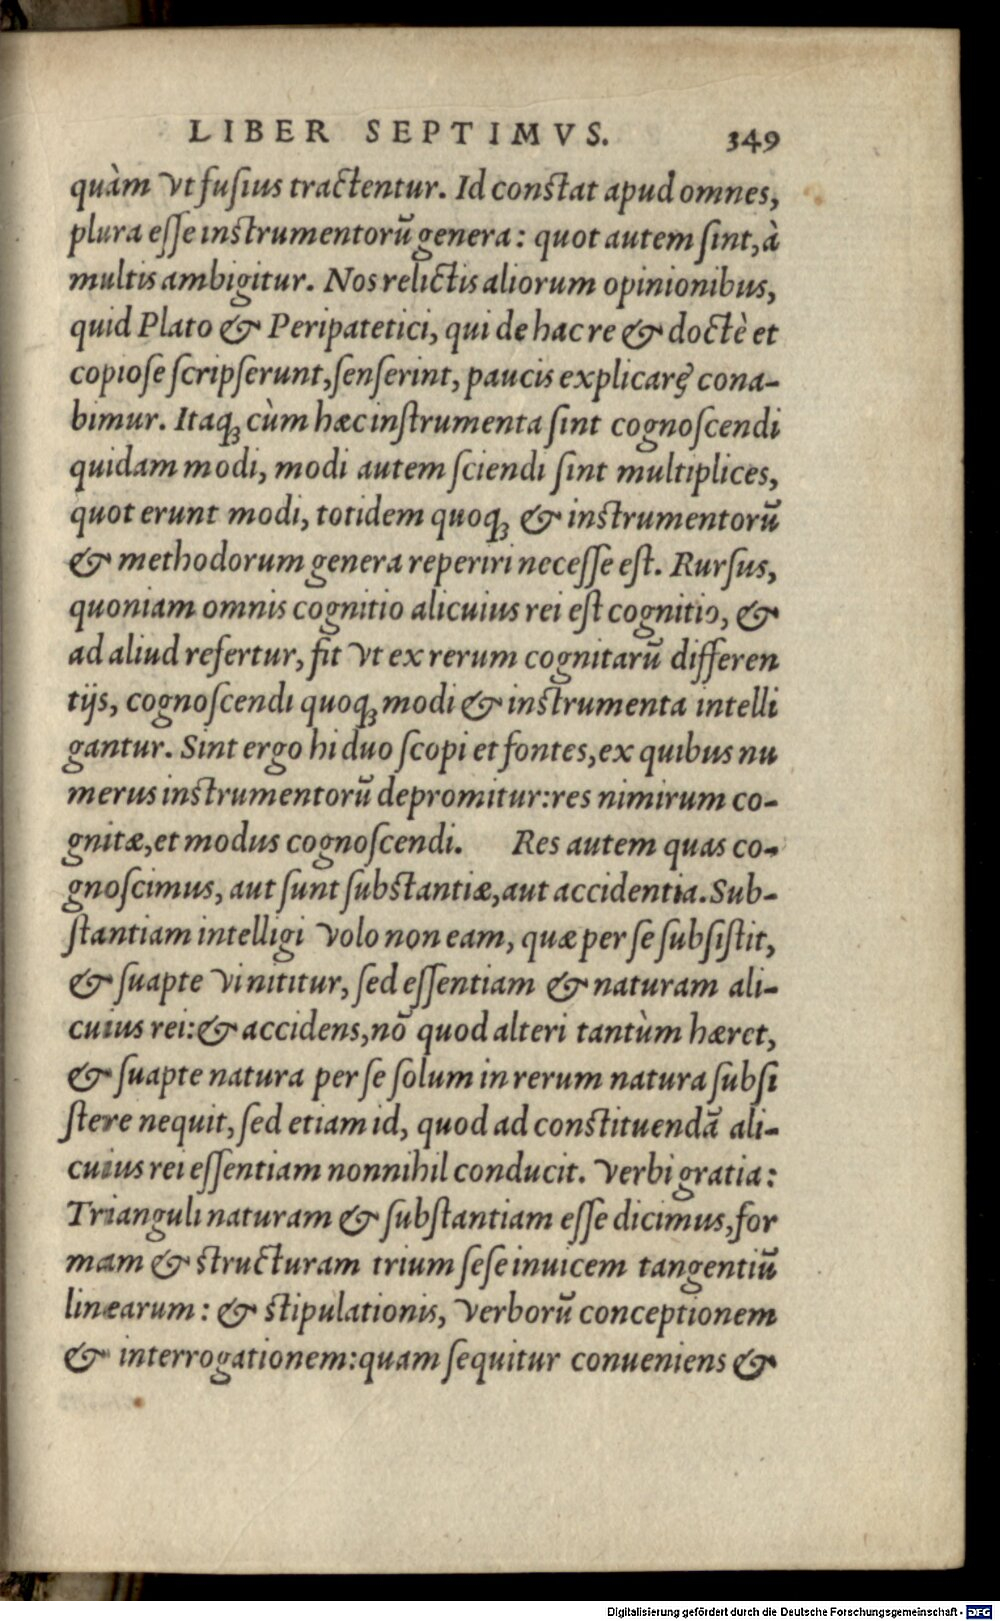 LIBER SEPTIMVS. 349
quàm vt fuſius tractentur. Id conſtat apud omnes,
plura eſſe inſtrumentorũ genera: quot autem ſint, à
multis ambigitur. Nos relictis aliorum opinionibus,
quid Plato & Peripatetici, qui de hac re & doctè et
copioſe ſcripſerunt, ſenſerint, paucis explicarę cona-
bimur. Itaq; cùm hæc inſtrumenta ſint cognoſcendi
quidam modi, modi autem ſciendi ſint multiplices,
quot erunt modi, totidem quoq; & inſtrumentorũ
& methodorum genera reperiri neceſſe eſt. Rurſus,
quoniam omnis cognitio alicuius rei eſt cognitio, &
ad aliud refertur, fit vt ex rerum cognitarũ differen
tijs, cognoſcendi quoq; modi & inſtrumenta intelli
gantur. Sint ergo hi duo ſcopi et fontes, ex quibus nu
merus inſtrumentorũ depromitur: res nimirum co-
gnitæ, et modus cognoſcendi. Res autem quas co-
gnoſcimus, aut ſunt ſubſtantiæ, aut accidentia. Sub-
ſtantiam intelligi volo non eam, quæ per ſe ſubſiſtit,
& ſuapte vi nititur, ſed eſſentiam & naturam ali-
cuius rei: & accidens, nõ quod alteri tantùm hæret,
& ſuapte natura per ſe ſolum in rerum natura ſubſi
ſtere nequit, ſed etiam id, quod ad conſtituendã ali-
cuius rei eſſentiam nonnihil conducit. Verbi gratia:
Trianguli naturam & ſubſtantiam eſſe dicimus, for
mam & ſtructuram trium ſeſe inuicem tangentiũ
linearum: & ſtipulationis, verborũ conceptionem
& interrogationem: quam ſequitur conueniens &
Digitalisierung gefördert durch die Deutsche Forschungsgemeinschaft - DFG